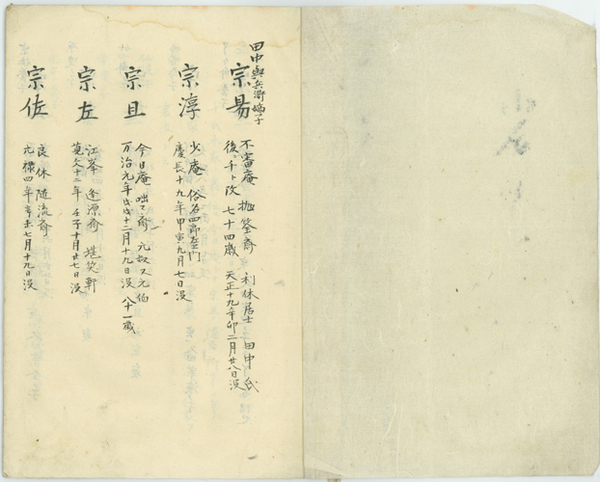 田中與兵衛端子
宗易
不審庵 抛筌斎 利休居士 田中氏
後千ト改 七十四歳 天正十九辛卯二月廿八日没
宗淳
少庵 俗名四郎左ェ門
慶長十九年甲寅九月七日没
宗旦
今日庵 咄々斎 元叔又元伯
万治元年戊戌十二月十九日没 八十一歳
宗左
江岑 逢源斎 堪笑軒
寛文十二年壬子十月廿七日没
宗佐
良休 随流斎
元禄四年辛未七月十九日没